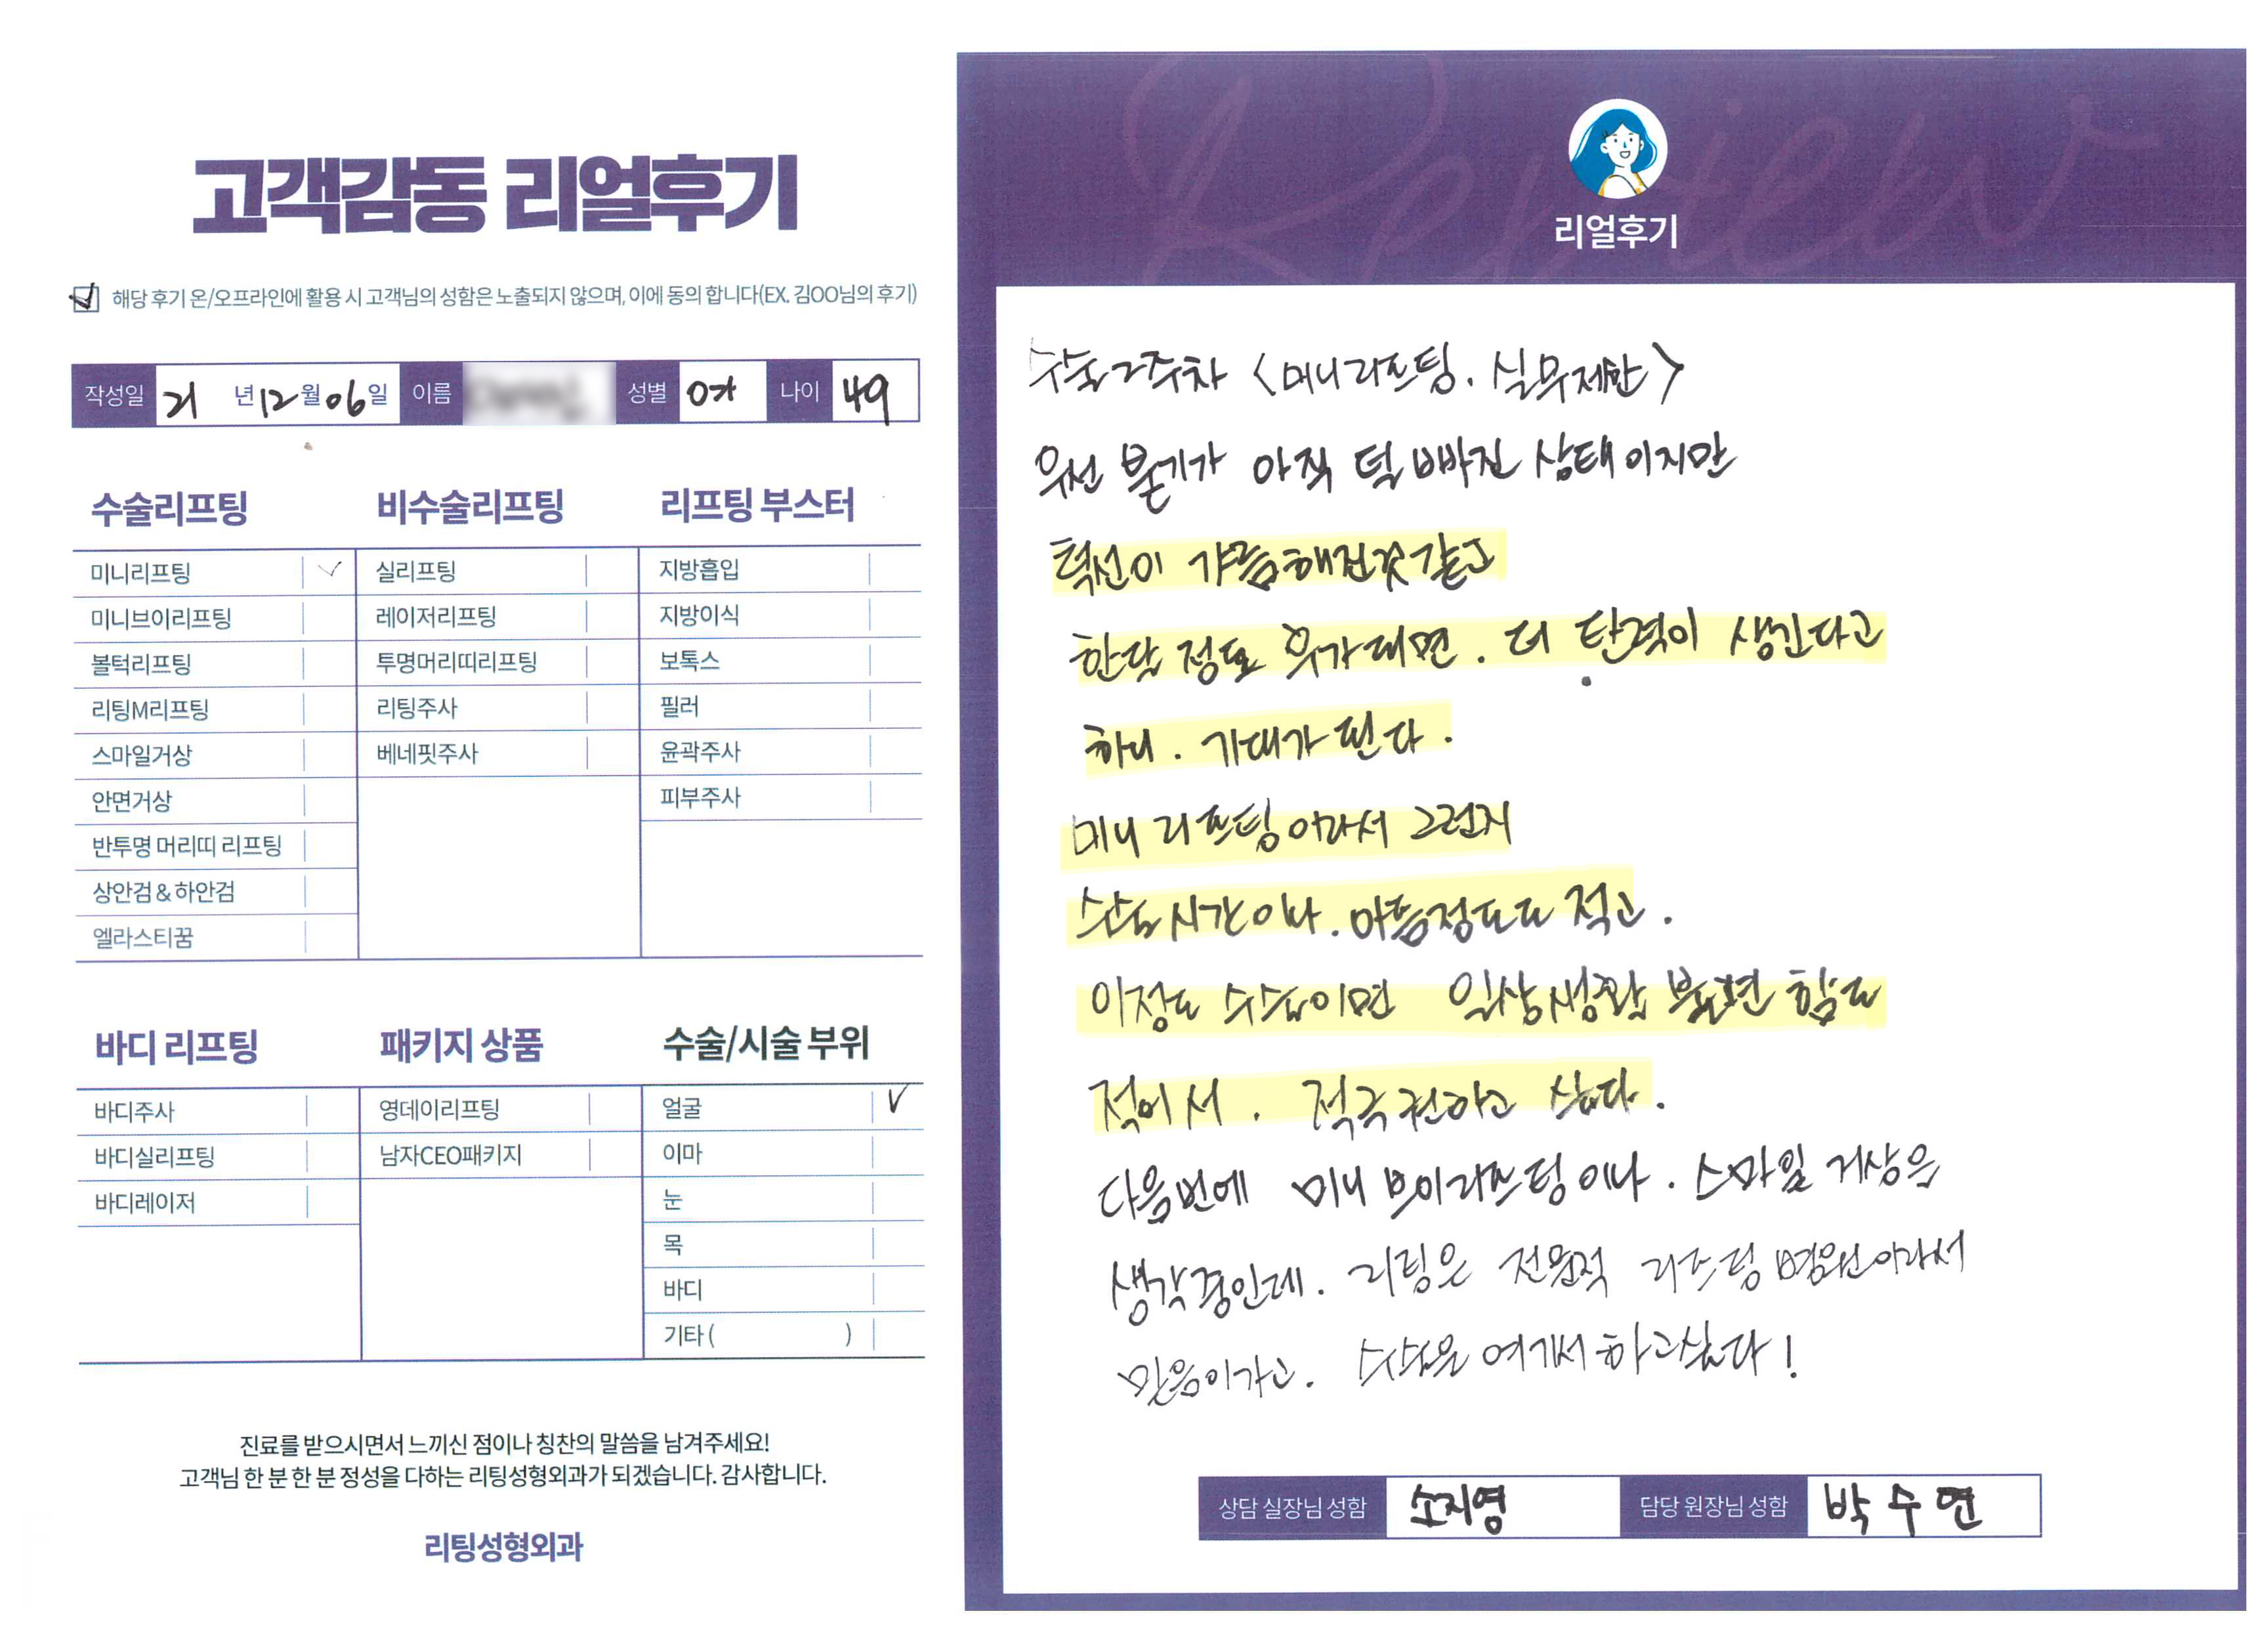 고객감동 리얼후기
해당 후기 온/오프라인에 활용 시 고객님의 성함은 노출되지 않으며, 이에 동의 합니다(EX. 김OO님의 후기)
작성일 21 년 12 월 06 일 이름 성별 여 나이 49
수술리프팅
미니리프팅
미니브이리프팅
볼턱리프팅
리팅M리프팅
스마일거상
안면거상
반투명 머리띠 리프팅
상안검 & 하안검
엘라스티꿈
비수술리프팅
실리프팅
레이저리프팅
투명머리띠리프팅
리팅주사
베네핏주사
리프팅 부스터
지방흡입
지방이식
보톡스
필러
윤곽주사
피부주사
바디 리프팅
바디주사
바디실리프팅
바디레이저
패키지 상품
영데이리프팅
남자CEO패키지
수술/시술 부위
얼굴
이마
눈
목
바디
기타 ( )
진료를 받으시면서 느끼신 점이나 칭찬의 말씀을 남겨주세요!
고객님 한 분 한 분 정성을 다하는 리팅성형외과가 되겠습니다. 감사합니다.
리팅성형외과
Review
리얼후기
수술 2주차 <미니리프팅. 실무제한>
우선 붓기가 아직 덜 빠진 상태이지만
턱선이 갸름해진것 같고
한달 정도 유가 되면. 더 탄력이 생긴다고
하니. 기대가 된다.
미니 리프팅이라서 그런지
수술시간이나. 아픔정도도 적고.
이정도 수술이면 일상생활 불편함도
적어서. 적극 권하고 싶다.
다음번에 미니 브이리프팅이나. 스마일 거상을
생각중인데. 리팅은 전문적 리프팅 병원이라서
믿음이가고. 수술은 여기서 하고싶다!
상담 실장님 성함 소지영 담당 원장님 성함 박수연